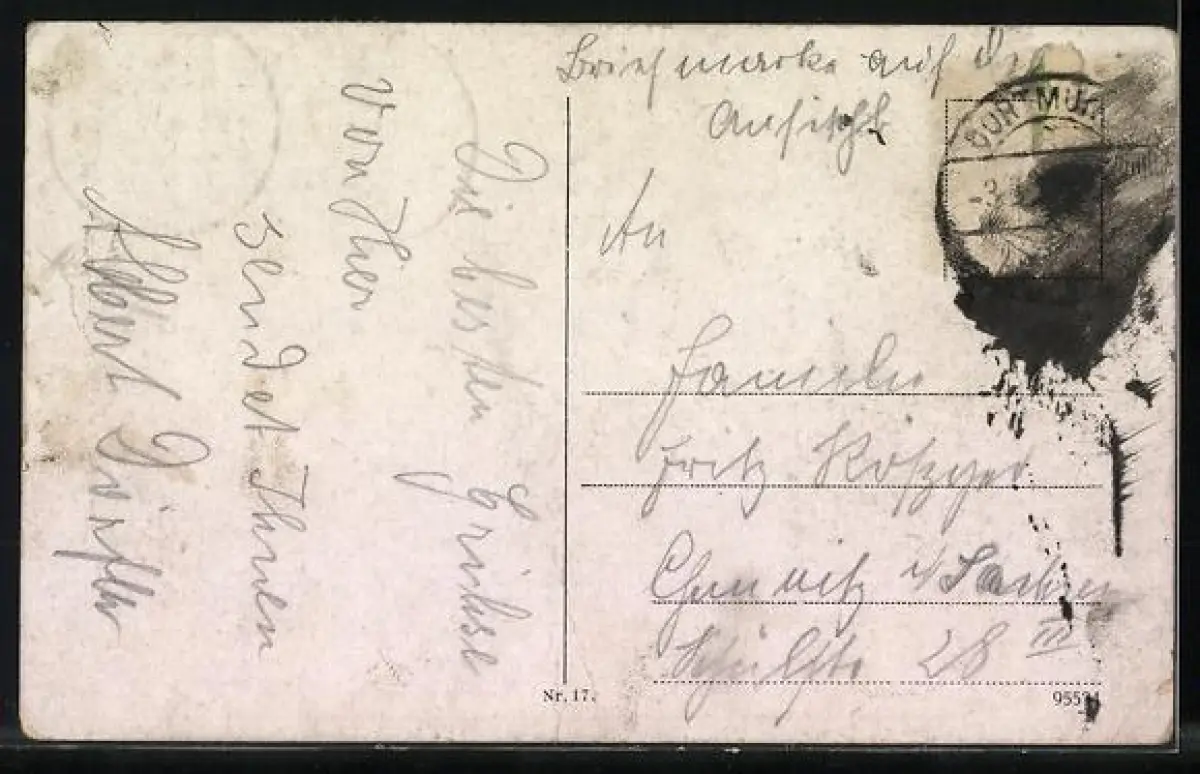 Briefmarke auf der
Ansicht
DORTMUN
An
Familie
Fritz
Chemnitz i/Sachsen
28 III
Die besten Grüsse
von Hier
sendet Ihnen
Albert Dörfler
Nr. 17.